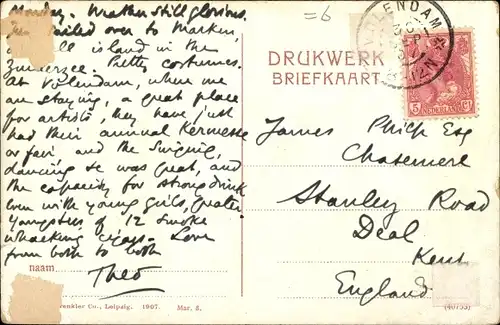 Monday. Weather still glorious.
sailed over to Marken,
island in the
Zuidersee. Pretty costumes.
At Volendam, where we
are staying, a great place
for artists, they have just
had their annual Kermesse
or fair and the singing,
dancing &c was great, and
the capacity for strong drink
even with young girls, quite
youngsters of 12 smoke
whacking cigars. Love
from both to both
Theo
naam
enkler Co., Leipzig. 1907. Mar. 5.
=6
VOLENDAM
DRUKWERK
BRIEFKAART
5 NEDERLAND CT
James Philp Esq
Chasemere
Stanley Road
Deal
Kent
England
(40753)